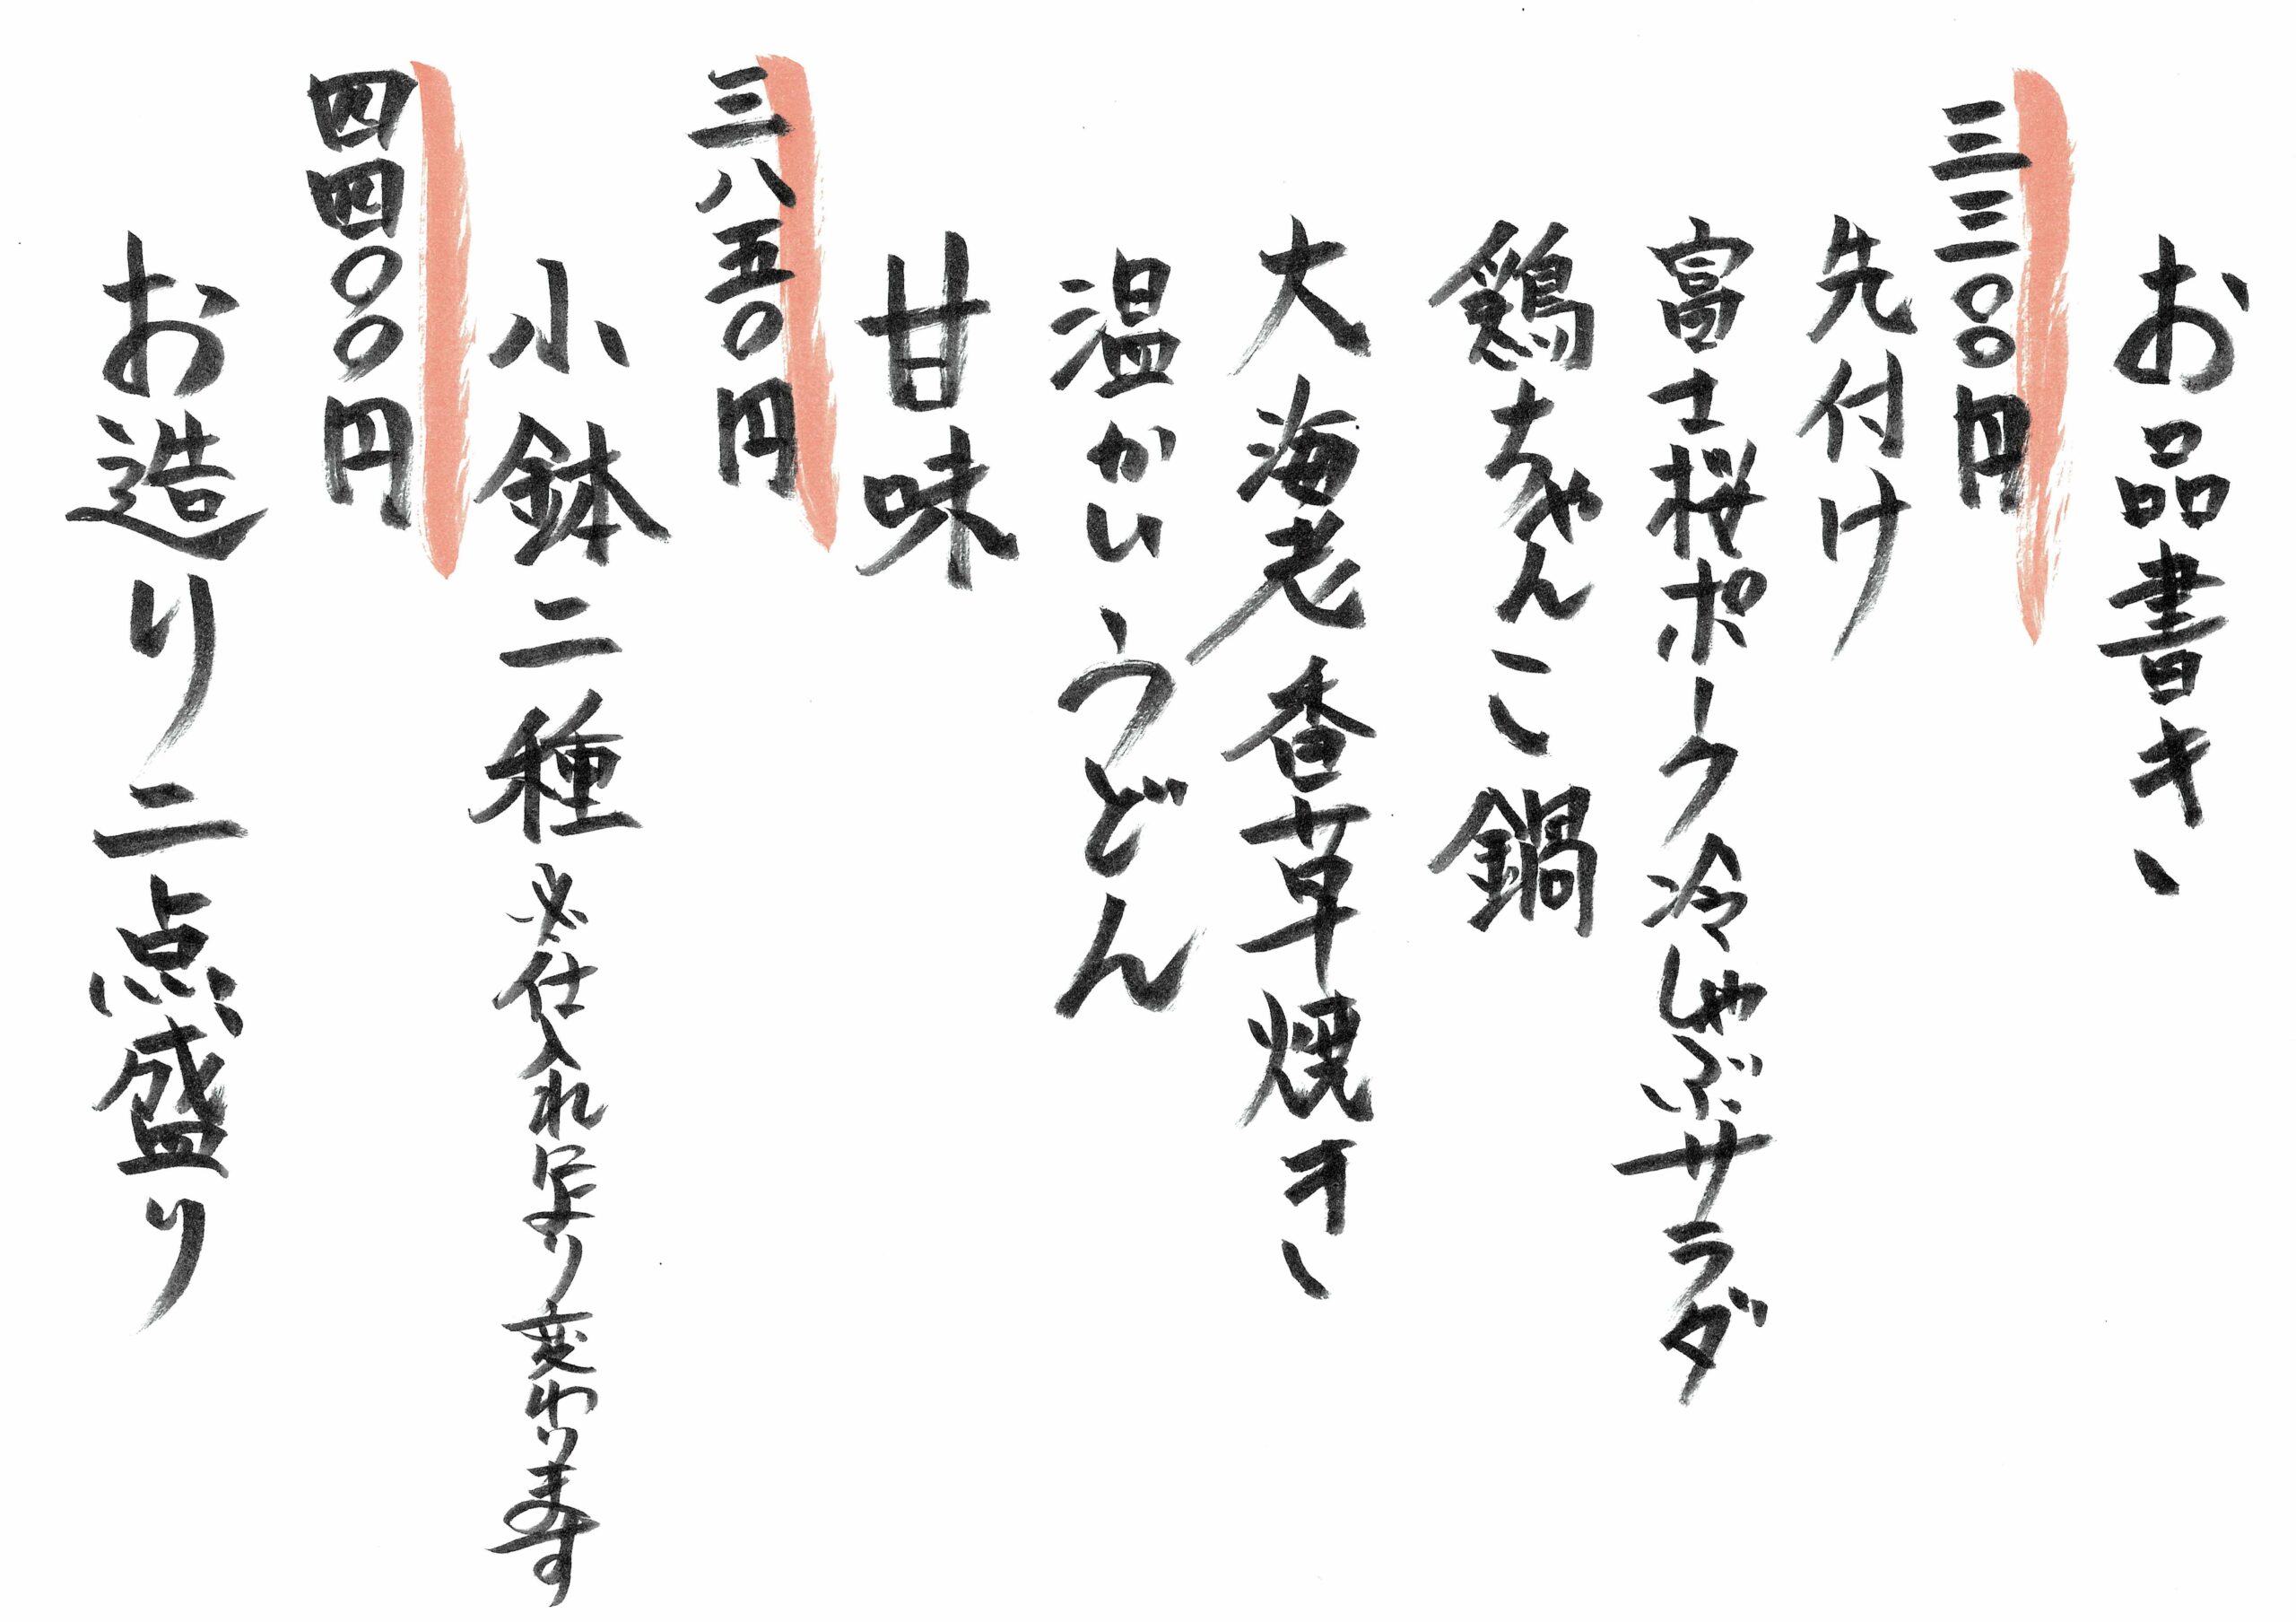 お品書き
三三〇〇円
先付け
富士桜ポーク冷しゃぶサラダ
鶏ちゃんこ鍋
大海老香草焼き
温かいうどん
甘味
三八五〇円
小鉢二種 仕入れにより変わります
四四〇〇円
お造り二点盛り